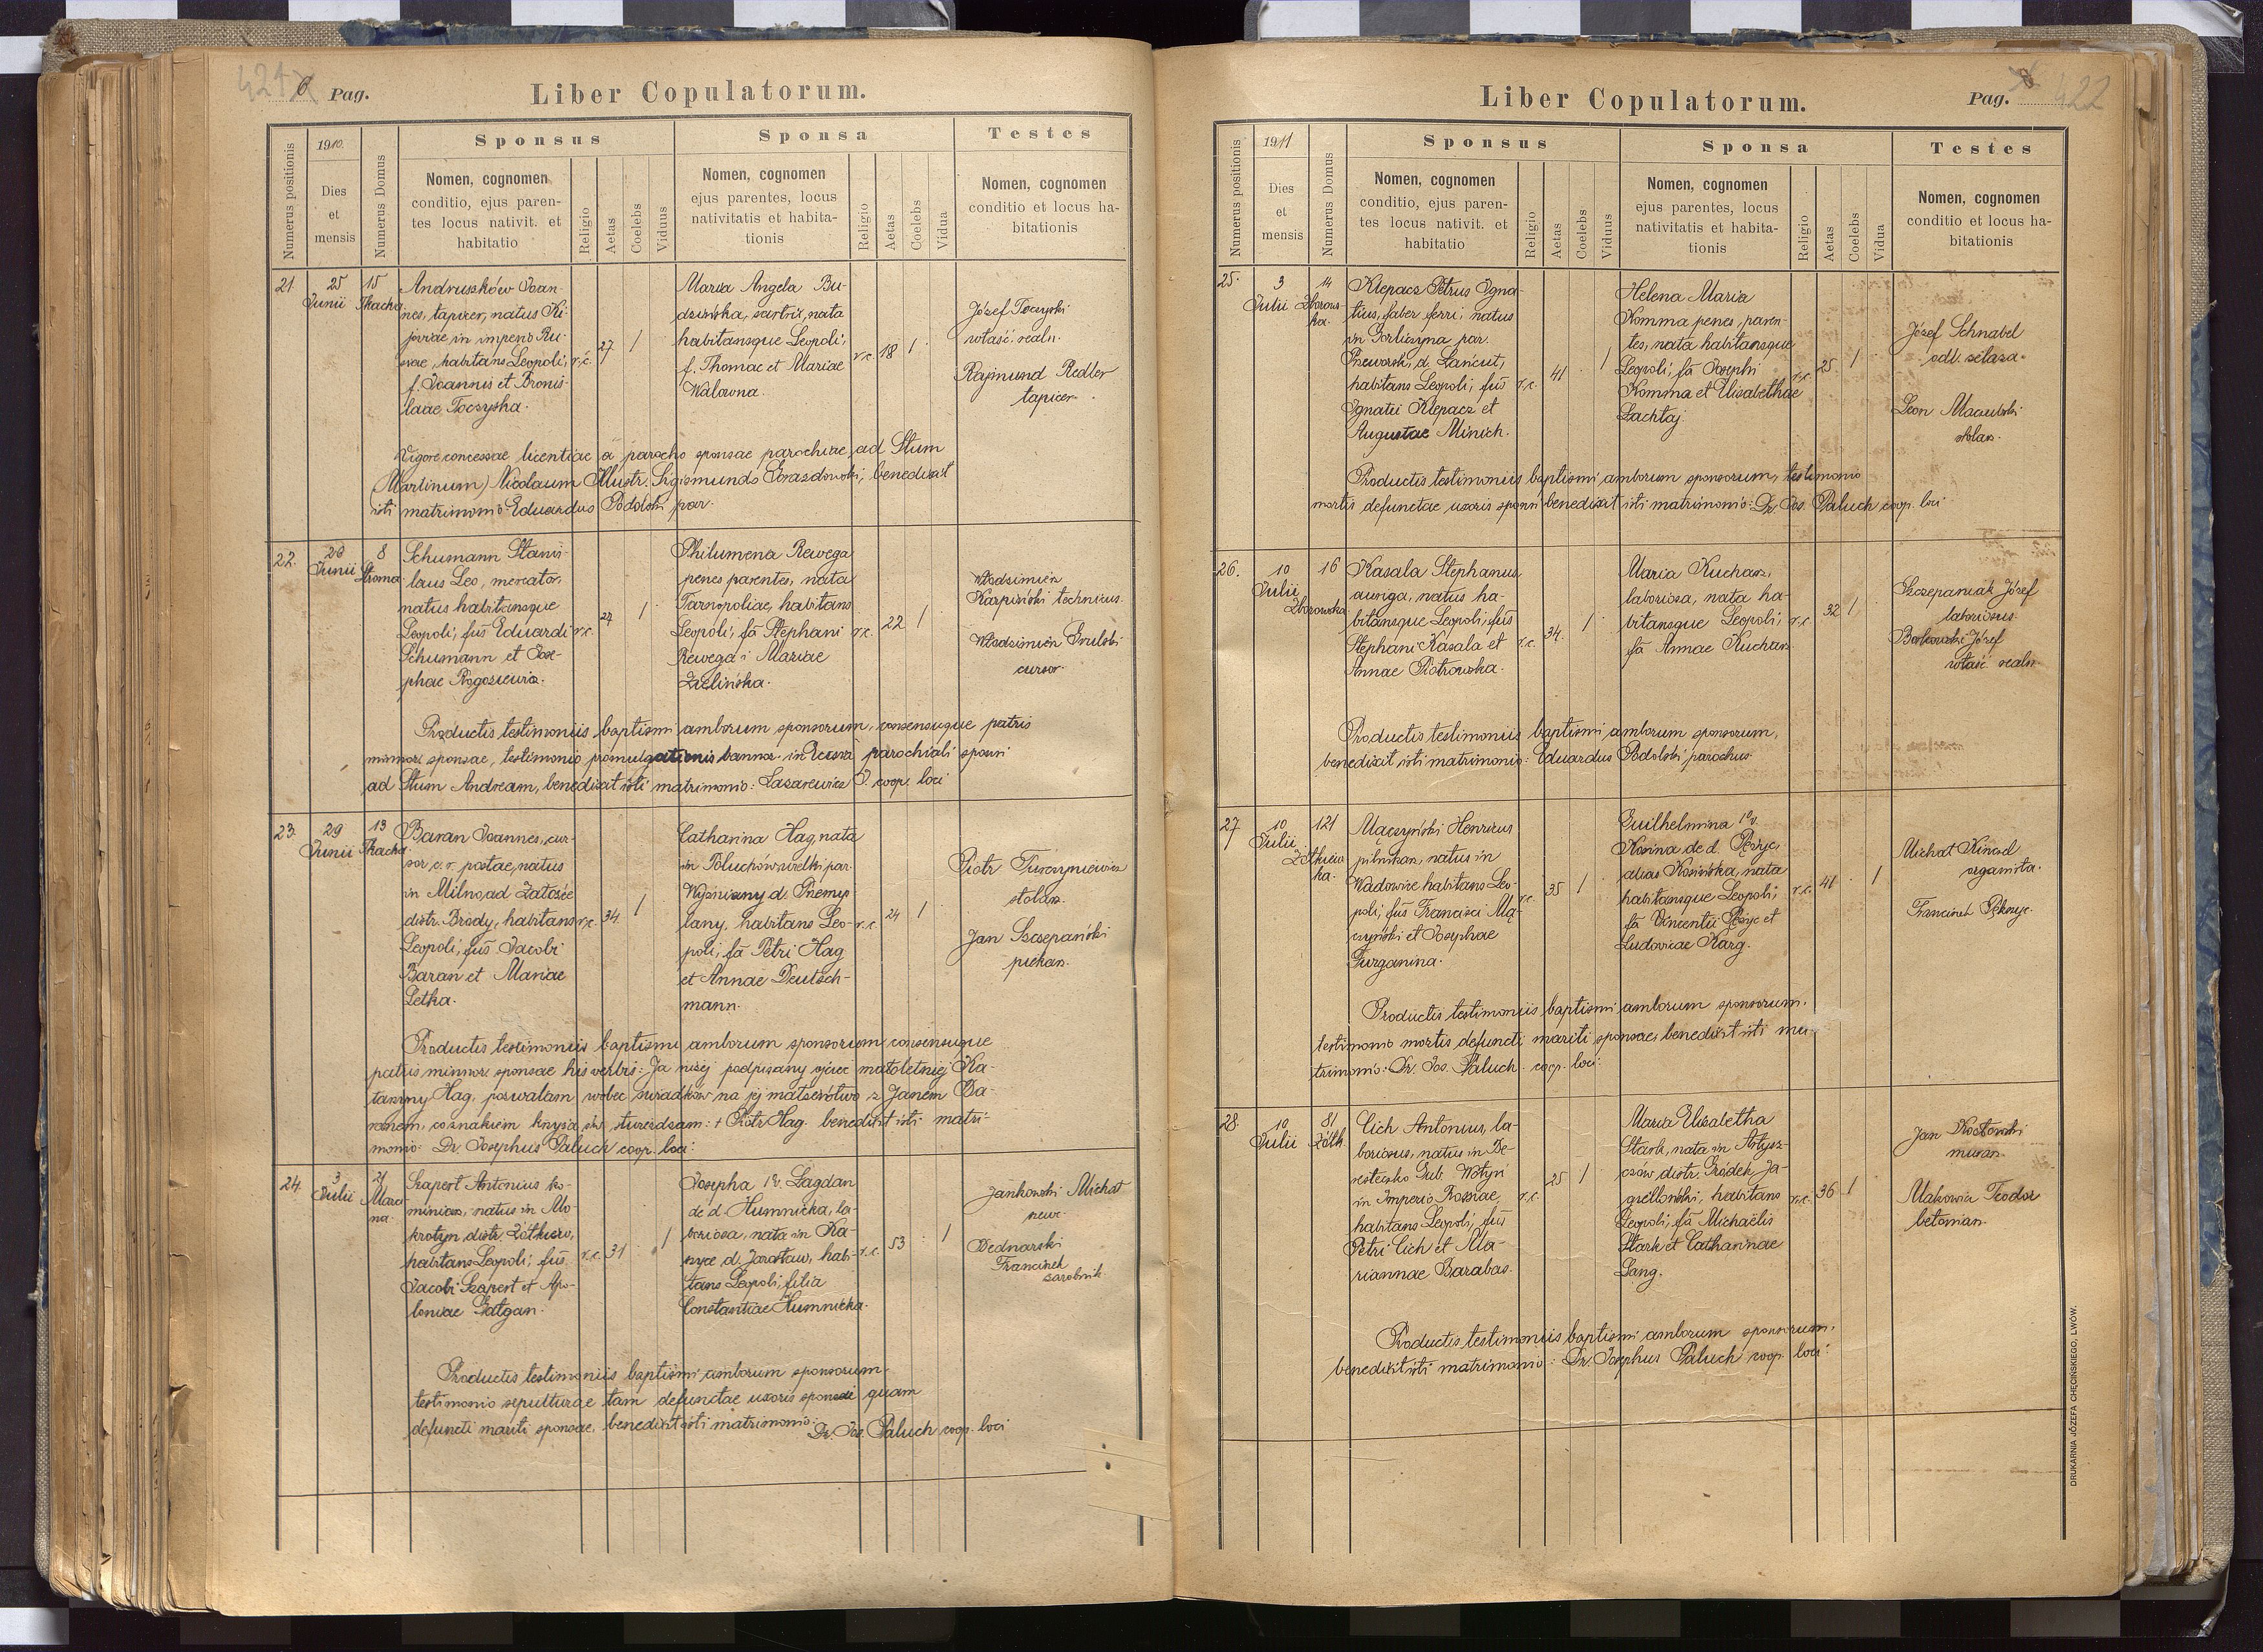 421
6 Pag.
Liber Copulatorum.
Numerus positionis
1910.
Dies
et
mensis
Numerus Domus
Sponsus
Nomen, cognomen
conditio, ejus paren-
tes locus nativit. et
habitatio
Religio
Aetas
Coelebs
Viduus
Sponsa
Nomen, cognomen
ejus parentes, locus
nativitatis et habita-
tionis
Religio
Aetas
Coelebs
Vidua
Testes
Nomen, cognomen
conditio et locus ha-
bitationis
21.
25
Junii
15
Tkacka
Andruszków Joan-
nes, tapicer, natus Ki-
joviae in imperio Ru-
ssiae, habitans Leopoli,
f. Joannis et Bronis-
laae Toczyska.
r.c.
27
1
Maria Angela Bu-
dzińska, sartrix, nata
habitansque Leopoli,
f. Thomae et Mariae
Walowna.
r.c.
18
1
Józef Toczyski
właść. realn.
Rajmund Redler
tapicer.
Vigore concessae licentiae a parocho sponsae parochiae ad Stum
(Martinum) Nicolaum Illustr. Sigismundo benedixit
isti matrimonio Eduardus Podolski par.
22.
26
Junii
8
Schumann Stanis-
laus Leo, mercator,
natus habitansque
Leopoli, fus Eduardi
Schumann et Jose-
phae Rogozicwia.
r.c.
27
1
Philumena Rewega
penes parentes, nata
Tarnopoliae, habitans
Leopoli, fa Stephani
Rewega i Mariae
Zielińska.
r.c.
22
1
Włodzimierz
Karpiński technicus.
Włodzimierz
cursor.
Productis testimoniis baptismi amborum sponsorum, consensuque patris
minnore sponsae, testimonio promulgationis bannor. in Ecclesia parochiali sponsi
ad Stum Andream, benedixit isti matrimonio: Lazarewicz J. coop. loci
23.
29
Junii
13
Tkacka
Baran Joannes, cur-
sor c. r. postae, natus
in Milno, ad Załośce
distr. Brody, habitans
Leopoli, fus Jacobi
Baran et Mariae
Letka.
r.c.
34.
1
Catharina Hag, nata
in Poluchów wielki par.
Wyżniany d. Przemy-
ślany, habitans Leo-
poli, fa Petri Hag
et Annae Deutsch-
mann.
r.c.
24
1
Piotr Turczyniewicz
stolarz.
Jan Szczepański
piekarz.
Productis testimoniis baptismi amborum sponsorum consensuque
patris minnore sponsae his verbis: Ja niżej podpisany ojciec małoletniej Ka-
tarzyny Hag, pozwalam wobec świadków na jej małżeństwo z Janem Ba-
ranem, co znakiem krzyża św. stwierdzam: + Piotr Hag. benedixit isti matri-
monio: Dr. Josephus Paluch coop. loci:
24.
3
Julii
21
Marci-
na.
Szapert Antonius ko-
miniarz, natus in Mo-
krotyn distr. Żółkiew,
habitans Leopoli, fus
Jacobi Szapert et Apo-
loniae Gałgan.
r.c.
31
1
Josepha 1v. Lagdan
de d. Humnicka, la-
boriosa, nata in Ka-
d. Jarosław, habi-
tans Leopoli, filia
Constantiae Humnicka.
r.c.
53
1
Jankowski Michał
Bednarski
Franciszek
zarobnik
Productis testimoniis baptismi amborum sponsorum.
testimonio sepulturae tam defunctae uxoris sponsi quam
defuncti mariti sponsae, benedixit isti matrimonio:
Dr. Jos. Paluch coop. loci
Liber Copulatorum.
Pag. 422
Numerus positionis
1911
Dies
et
mensis
Numerus Domus
Sponsus
Nomen, cognomen
conditio, ejus paren-
tes locus nativit. et
habitatio
Religio
Aetas
Coelebs
Viduus
Sponsa
Nomen, cognomen
ejus parentes, locus
nativitatis et habita-
tionis
Religio
Aetas
Coelebs
Vidua
Testes
Nomen, cognomen
conditio et locus ha-
bitationis
25.
3
Julii
14
Zborows-
ka.
Klepacz Petrus Igna-
tius, faber ferri, natus
in Gorliczyna par.
Przeworsk, d. Łańcut,
habitans Leopoli, fus
Ignatii Klepacz et
Augustae Minich.
r.c.
41
1
Helena Maria
Komma penes paren-
tes, nata habitansque
Leopoli, fa Josephi
Komma et Elisabethae
Lachtaj.
r.c.
25
1
Józef Schnabel
odl. żelaza.
Leon Maculski
stolarz.
Productis testimoniis baptismi amborum sponsorum, testimonio
mortis defunctae uxoris sponsi benedixit isti matrimonio: Dr. Jos. Paluch coop. loci
26.
10
Julii
16
Zborowska
Kasala Stephanus
auriga, natus ha-
bitansque Leopoli, fus
Stephani Kasala et
Annae Piotrowska.
r.c.
34.
1
Maria Kucharz,
laboriosa, nata ha-
bitansque Leopoli,
fa Annae Kucharz.
r.c.
32
1
Szczepaniak Józef
laboriosus.
Borkowski Józef
właść. realn.
Productis testimoniis baptismi amborum sponsorum,
benedixit isti matrimonio: Eduardus Podolski parochus.
27.
10
Julii
121
Żółkiew-
ka.
Mączyński Henricus
pilnikarz, natus in
Wadowice habitans Leo-
poli, fus Francisci Mą-
czyński et Josephae
Furganina.
r.c.
35
1
Guilhelmina 1v.
Kosina de d. Pężyc,
alias Kosińska, nata
habitansque Leopoli,
fa Vincentii Pężyc et
Ludovicae Karg.
r.c.
41
1
Michał Kincel
organista.
Franciszek
Productis testimoniis baptismi amborum sponsorum.
testimonio mortis defuncti mariti sponsae, benedixit isti ma-
trimonio: Dr. Jos. Paluch coop. loci:
28.
10
Julii
81
Żółk.
Cich Antonius, la-
boriosus, natus in Be-
resteczko Gub. Wołyń
in Imperio Rossiae,
habitans Leopoli, fus
Petri Cich et Ma-
riannae Barabas.
r.c.
25
1
Maria Elisabetha
Stark, nata in Artysz-
czów distr. Gródek Ja-
gielloński, habitans
Leopoli, fa Michaëlis
Stark et Catharinae
Lang.
r.c.
36
1
Jan Kostowski
murarz.
Makowicz Teodor
betoniarz.
Productis testimoniis baptismi amborum sponsorum,
benedixit isti matrimonio: Dr. Josephus Paluch coop. loci:
DRUKARNIA JÓZEFA CHĘCIŃSKIEGO, LWÓW.